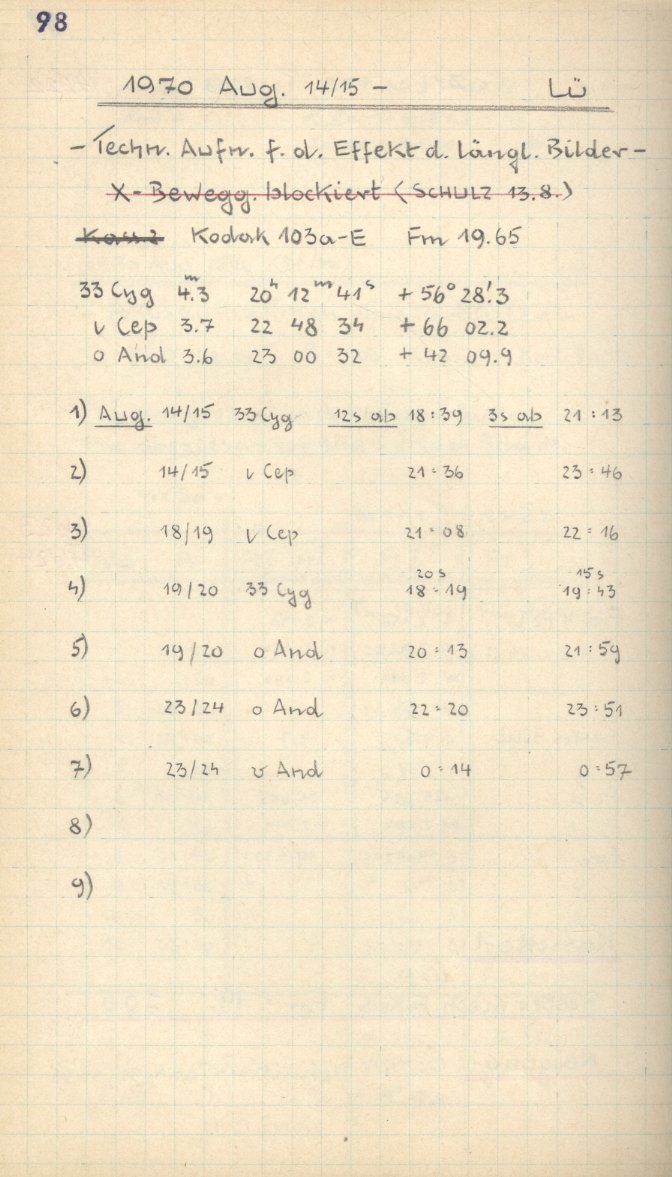 98
1970 Aug. 14/15 - Lü
- Techn. Aufn. f. d. Effekt d. Längl. Bilder -
X-Bewegg. blockiert (SCHULZ 13.8.)
Kodak 103a-E Fm 19.65
33 Cyg 4.ᵐ3 20ʰ 12ᵐ 41ˢ + 56° 28!3
ν Cep 3.7 22 48 34 + 66 02.2
o And 3.6 23 00 32 + 42 09.9
1) Aug. 14/15 33 Cyg 12s ab 18:39 3s ab 21:13
2) 14/15 ν Cep 21:36 23:46
3) 18/19 ν Cep 21:08 22:16
20s 15s
4) 19/20 33 Cyg 18:19 19:43
5) 19/20 o And 20:13 21:59
6) 23/24 o And 22:20 23:51
7) 23/24 υ And 0:14 0:57
8)
9)